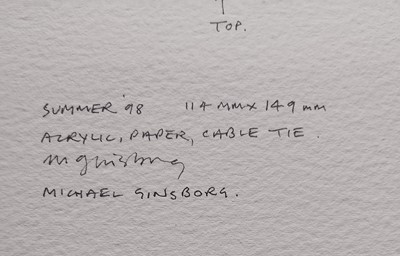 TOP.
SUMMER '98 114 MM X 149 mm
ACRYLIC, PAPER, CABLE TIE.
M Ginsborg
MICHAEL GINSBORG.